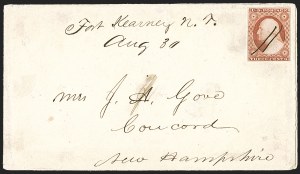 Fort Kearney N. T.
Aug 30
Mrs J. A. Gove
Concord
New Hampshire